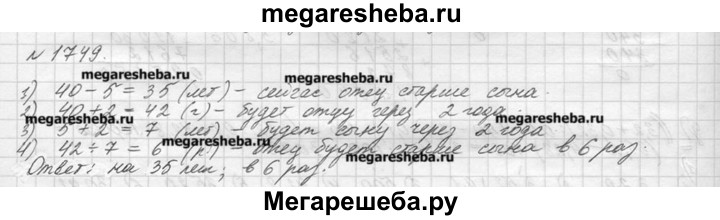 megaresheba.ru
№ 1749.
megaresheba.ru megaresheba.ru
1) 40 - 5 = 35 (лет) - сейчас отец старше сына.
2) 40 + 2 = 42 (г) - будет отцу через 2 года.
megaresheba.ru megaresheba.ru
3) 5 + 2 = 7 (лет) - будет сыну через 2 года
4) 42 ÷ 7 = 6 (р) - отец будет старше сына в 6 раз.
megaresheba.ru
Ответ: на 35 лет; в 6 раз.
Мегарешеба.ру